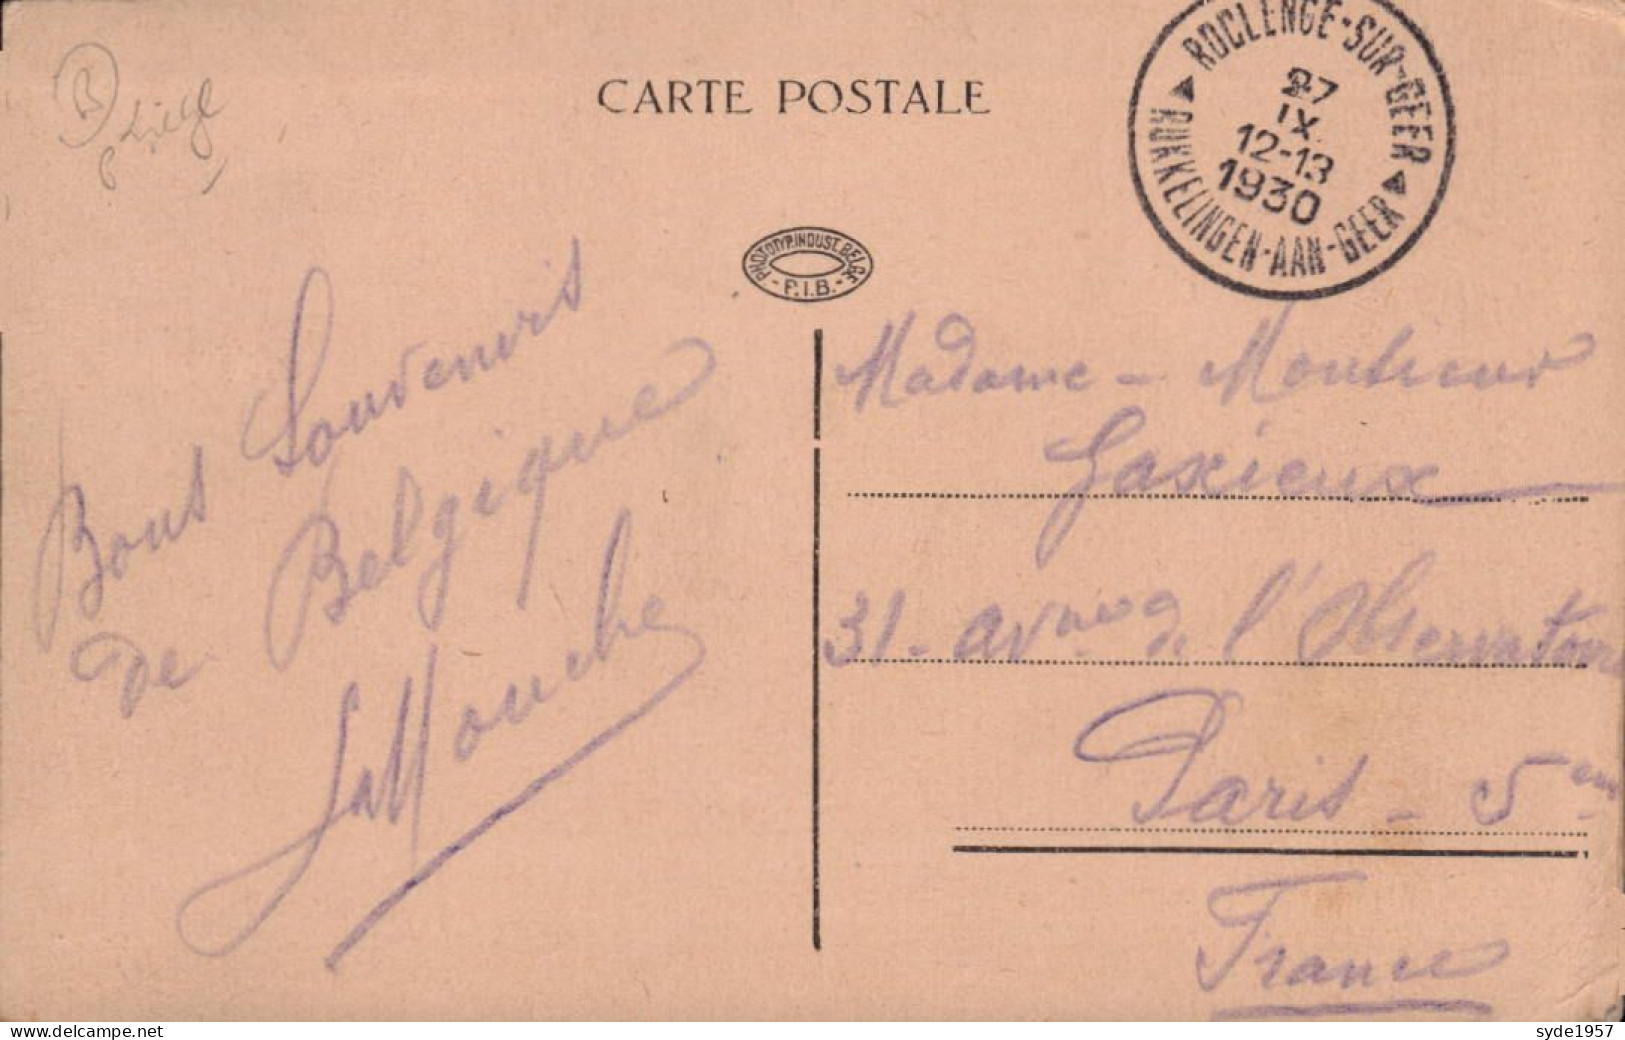 CARTE POSTALE
B
Liége
ROCLENGE-SUR-GEER
27
IX
12-13
1930
RUKKELINGEN-AAN-GEER
PHOTOTYP. INDUST. BELGE
- P.I.B. -
Bons Souvenirs
de Belgique
Madame - Monsieur
Gaxieux
31 - av nue de l'Observatoire
Paris - 5eme
France
delcampe.net
syde1957